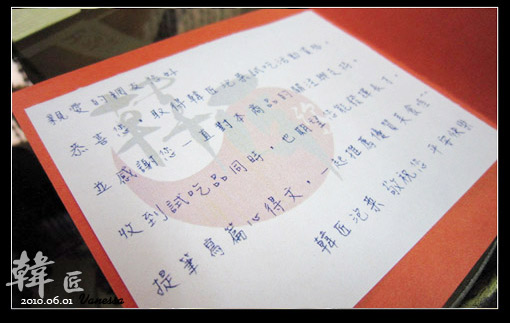 親愛的網友您好
恭喜您,取得韓匠泡菜試吃活動資格,
並感謝您一直對本商品的關注與支持。
收到試吃品同時,也期望您能撥撥
提筆寫篇心得文,一起推薦優質美食唷
韓匠泡菜 敬祝您 平安快樂
韓匠
韓匠
2010.06.01 Vanessa